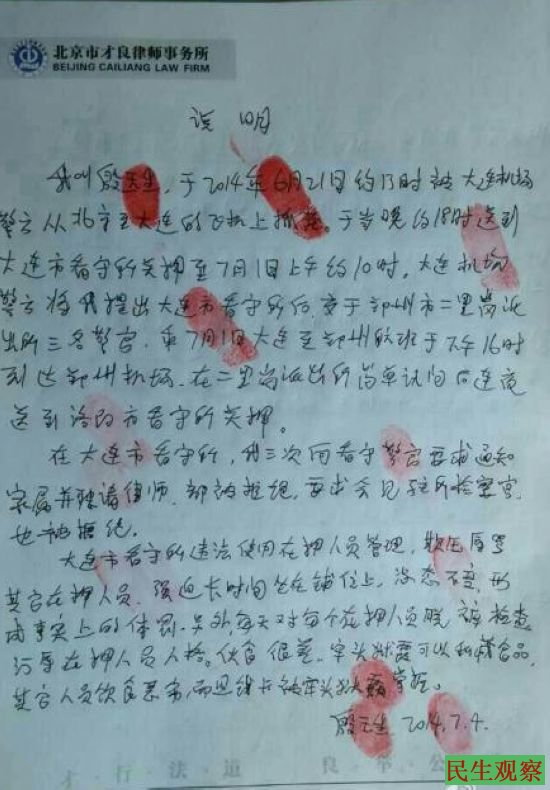 北京市才良律师事务所
BEIJING CAILIANG LAW FIRM
说 明
我叫殷玉生，于2014年6月21日约13时被大连机场
警官从北京至大连的飞机上抓获。于当晚约18时送到
大连市看守所关押至7月1日上午约10时，大连机场
警官将我提出大连市看守所后，交于郑州市二里岗派
出所三名警官，乘7月1日大连至郑州航班于下午16时
到达郑州机场，在二里岗派出所简单讯问后连夜
送到洛阳市看守所关押。
在大连市看守所，我三次向看守警官要求通知
家属并聘请律师，都被拒绝，要求会见驻所检察官，
也被拒绝。
大连市看守所违法使用在押人员管理，欺压辱骂
其它在押人员，强迫长时间坐在铺位上，姿态不变，形
成事实上的体罚。另外，每天对每个在押人员脱裤检查，
污辱在押人员人格。伙食很差，牢头狱霸可以私藏食品，
其它人员饮食，而且被牢头狱霸掌握。
殷玉生 2014.7.4.
才·行·法·道 良·举·公
民生观察